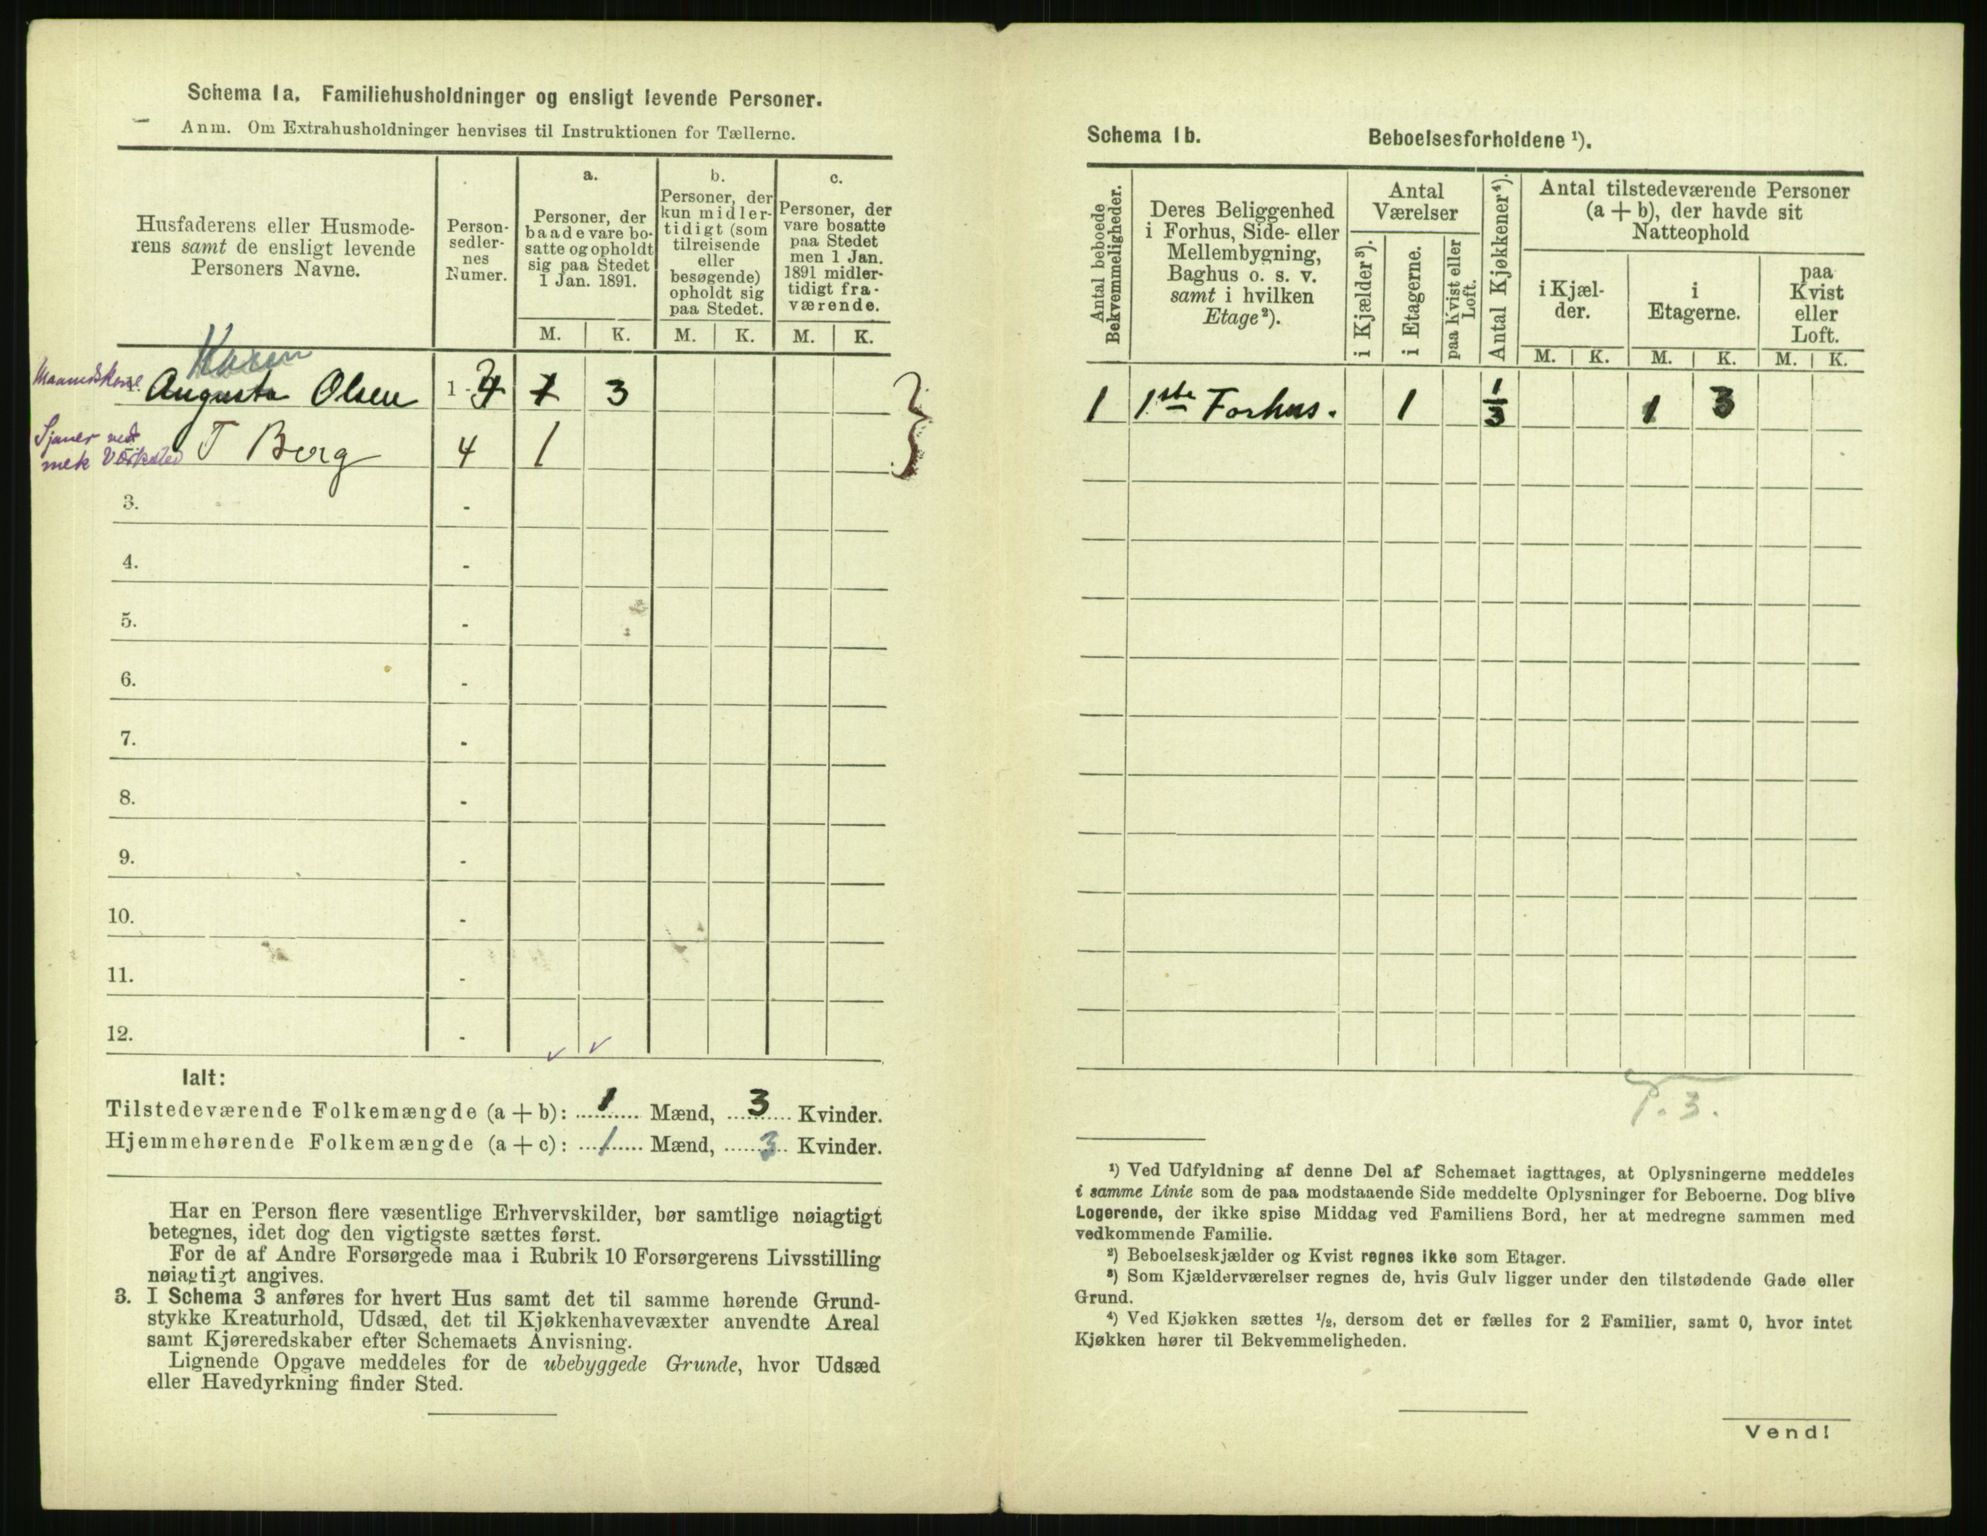 Schema 1a. Familiehusholdninger og ensligt levende Personer.
Anm. Om Extrahusholdninger henvises til Instruktionen for Tællerne.
Husfaderens eller Husmode-
rens samt de ensligt levende
Personers Navne.
Person-
sedler-
nes
Numer.
a.
Personer, der
baade vare bo-
satte og opholdt
sig paa Stedet
1 Jan. 1891.
b.
Personer, der
kun midler-
tidigt (som
tilreisende
eller
besøgende)
opholdt sig
paa Stedet.
c.
Personer, der
vare bosatte
paa Stedet
men 1 Jan.
1891 midler-
tidigt fra-
værende.
M. K. M. K. M. K.
Karen
Augusta Olsen 1 - 3 1 3
Sjauer ved
mek Værksted T Berg 4 1
3. -
4. -
5. -
6. -
7. -
8. -
9. -
10. -
11. -
12. -
Ialt:
Tilstedeværende Folkemængde (a + b): 1 Mænd, 3 Kvinder.
Hjemmehørende Folkemængde (a + c): 1 Mænd, 3 Kvinder.
Har en Person flere væsentlige Erhvervskilder, bør samtlige nøiagtigt
betegnes, idet dog den vigtigste sættes først.
For de af Andre Forsørgede maa i Rubrik 10 Forsørgerens Livsstilling
nøiagtigt angives.
3. I Schema 3 anføres for hvert Hus samt det til samme hørende Grund-
stykke Kreaturhold, Udsæd, det til Kjøkkenhavevæxter anvendte Areal
samt Kjøreredskaber efter Schemaets Anvisning.
Lignende Opgave meddeles for de ubebyggede Grunde, hvor Udsæd
eller Havedyrkning finder Sted.
Schema 1b. Beboelsesforholdene ¹).
Antal beboede
Bekvemmeligheder.
Deres Beliggenhed
i Forhus, Side- eller
Mellembygning,
Baghus o. s. v.
samt i hvilken
Etage²).
Antal
Værelser
i Kjælder³).
i Etagerne.
paa Kvist eller
Loft.
Antal Kjøkkener⁴).
Antal tilstedeværende Personer
(a + b), der havde sit
Natteophold
i Kjæl-
der.
i
Etagerne.
paa
Kvist
eller
Loft.
M. K. M. K. M. K.
1 1ste Forhus. 1 1/3 1 3
P. 3.
¹) Ved Udfyldning af denne Del af Schemaet iagttages, at Oplysningerne meddeles
i samme Linie som de paa modstaaende Side meddelte Oplysninger for Beboerne. Dog blive
Logerende, der ikke spise Middag ved Familiens Bord, her at medregne sammen med
vedkommende Familie.
²) Beboelseskjælder og Kvist regnes ikke som Etager.
³) Som Kjælderværelser regnes de, hvis Gulv ligger under den tilstødende Gade eller
Grund.
⁴) Ved Kjøkken sættes ½, dersom det er fælles for 2 Familier, samt 0, hvor intet
Kjøkken hører til Bekvemmeligheden.
Vend!